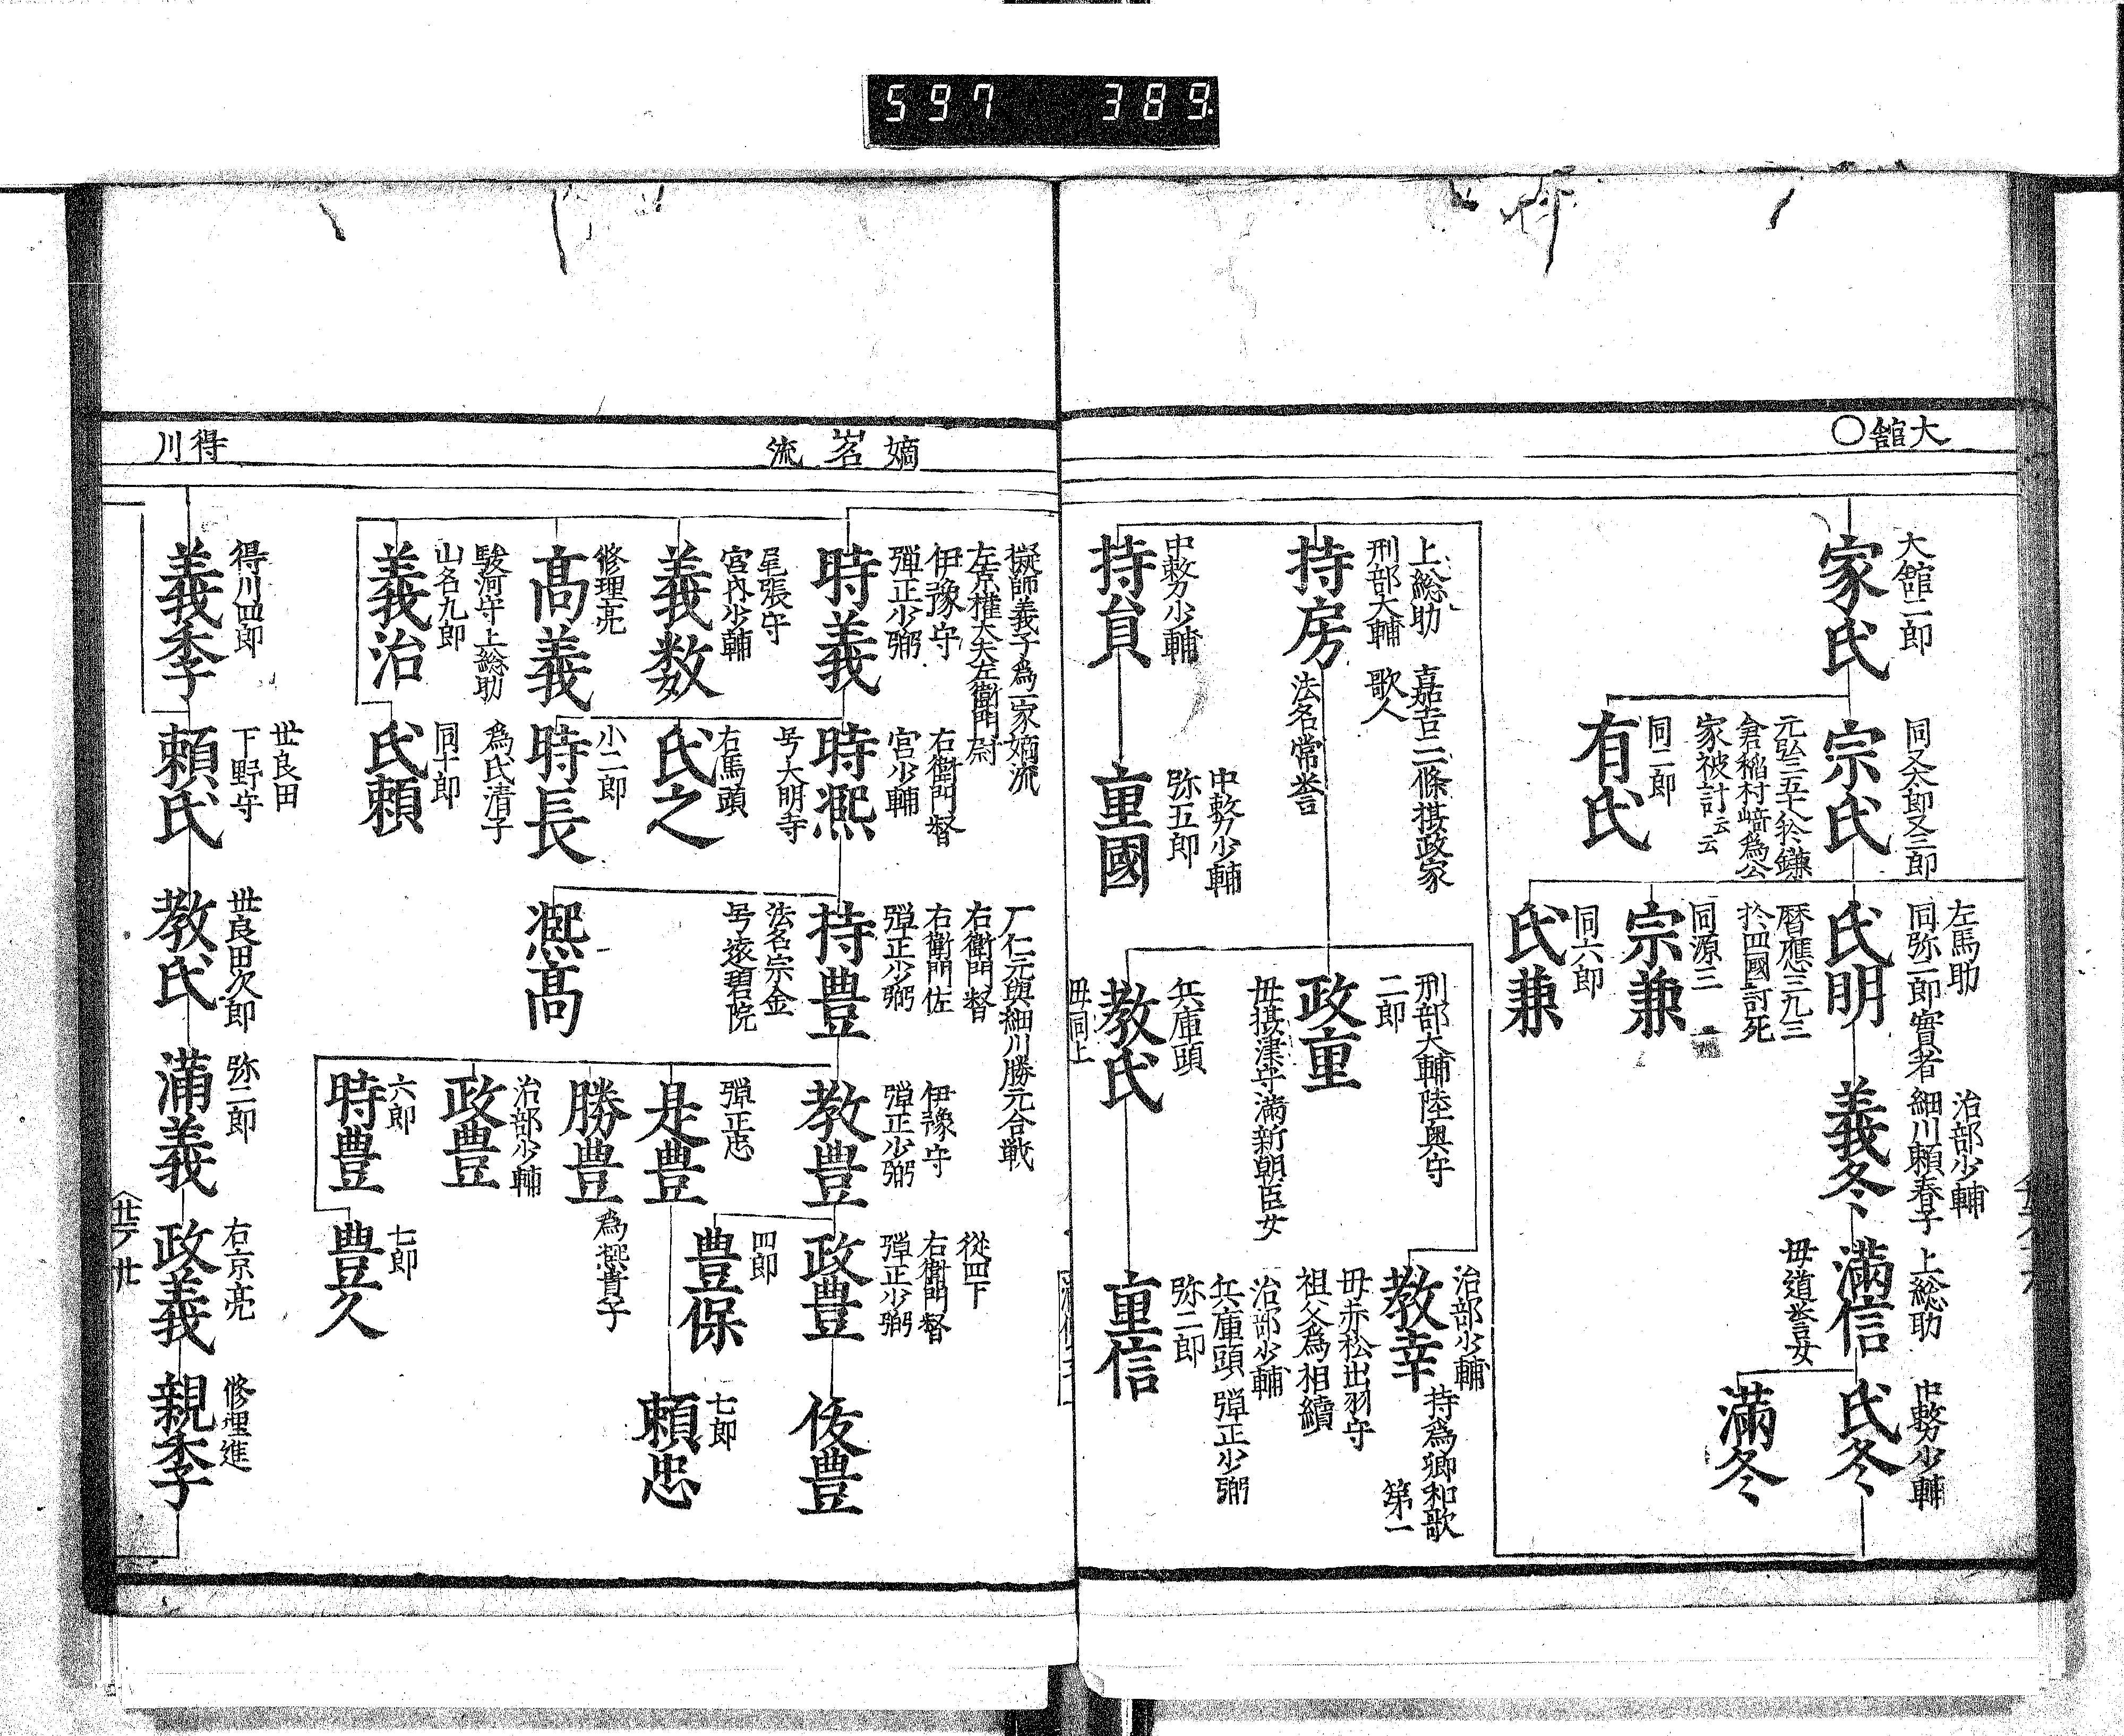 597 389
大舘〇
大舘二郎
家氏
同又太郎又三郎
宗氏
元弘三五十八於鎌
倉稲村﨑為公
家被討云云
同二郎
有氏
左馬助
同弥二郎實者
氏明
暦應三九三
於四國討死
同源三
宗兼
同六郎
氏兼
治部少輔
細川頼春子
義冬
上総助
満信
母道誉女
中務少輔
氏冬
満冬
上総助
刑部大輔 歌人
嘉吉二二條摂政家
持房
法名常誉
中務少輔
持員
中務少輔
弥五郎
重國
刑部大輔陸奥守
二郎
政重
母摂津守満新朝臣女
兵庫頭
教氏
母同上
治部少輔
教幸
持為卿和歌
第一
母赤松出羽守
祖父為相續
治部少輔
兵庫頭 弾正少弼
弥二郎
重信
嫡
流
擬師義子為一家嫡流
左京權大夫左衛門尉
伊豫守
弾正少弼
時義
尾張守
宮内少輔
義数
修理亮
高義
駿河守上総助
山名九郎
義治
右衛門督
宮少輔
時凞
号大明寺
右馬頭
氏之
小二郎
時長
為氏清子
同十郎
氏頼
广仁元與細川勝元合戦
右衛門督
右衛門佐
弾正少弼
持豊
法名宗金
号遠碧院
凞高
伊豫守
弾正少弼
教豊
弾正忠
是豊
勝豊
為凞貴子
治部少輔
政豊
六郎
時豊
七郎
豊久
從四下
右衛門督
弾正少弼
政豊
四郎
豊保
俊豊
七郎
頼忠
得川
得川四郎
義季
世良田
下野守
頼氏
世良田次郎
教氏
弥二郎
満義
右京亮
政義
修理進
親季